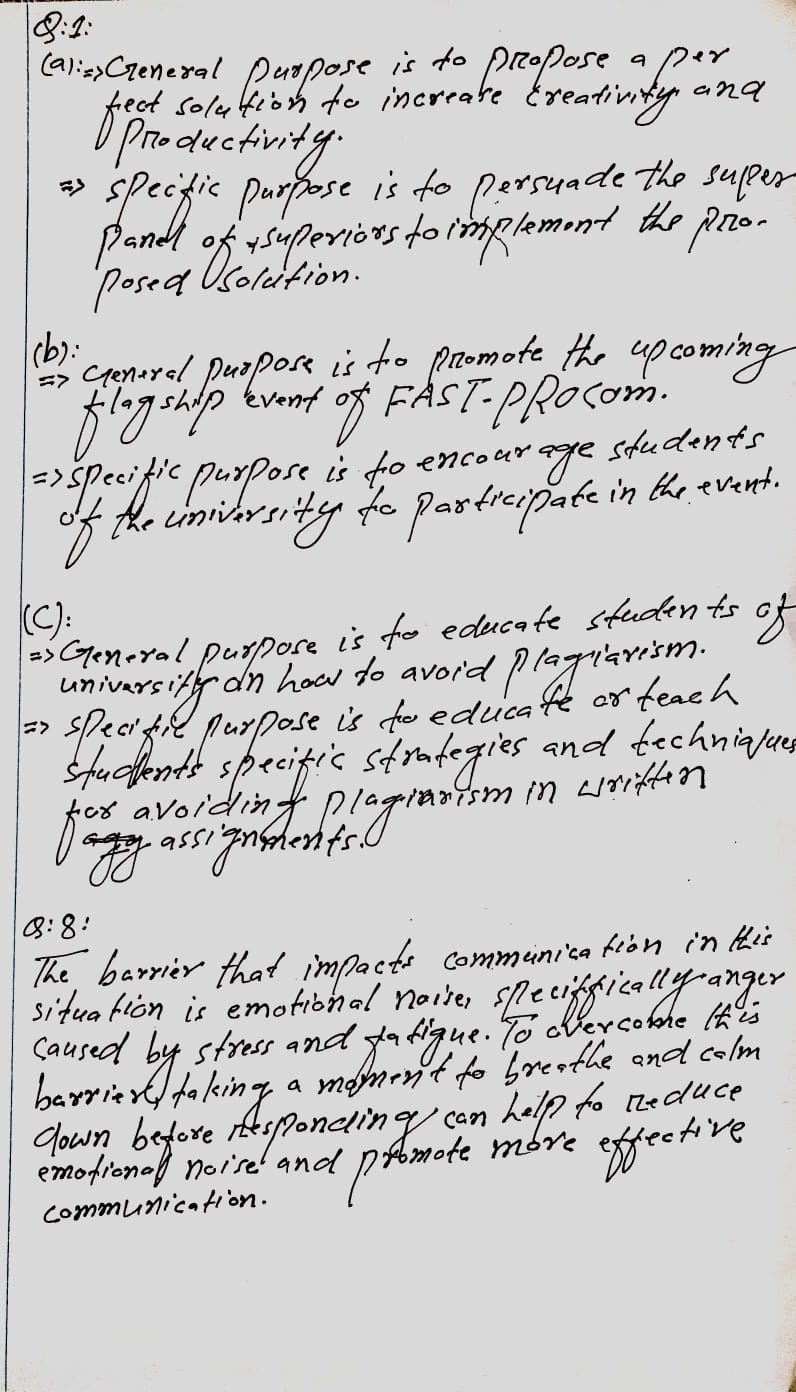 Q:1:
(a):=> General Purpose is to propose a per
fect solution to increase creativity and
productivity.
=> specific purpose is to persuade the super
panel of superiors to implement the pro-
posed solution.
(b):
=> General purpose is to promote the upcoming
flagship event of FAST-PROCOM.
=> specific purpose is to encourage students
of the university to participate in the event.
(C):
=> General purpose is to educate students of
university on how to avoid plagiarism.
=> specific purpose is to educate or teach
students specific strategies and techniques
for avoiding plagiarism in written
assignments.
Q:8:
The barrier that impacts communication in this
situation is emotional noise, speciffically anger
caused by stress and fatigue. To overcome this
barrier, taking a moment to breathe and calm
down before responding can help to reduce
emotional noise and promote more effective
communication.